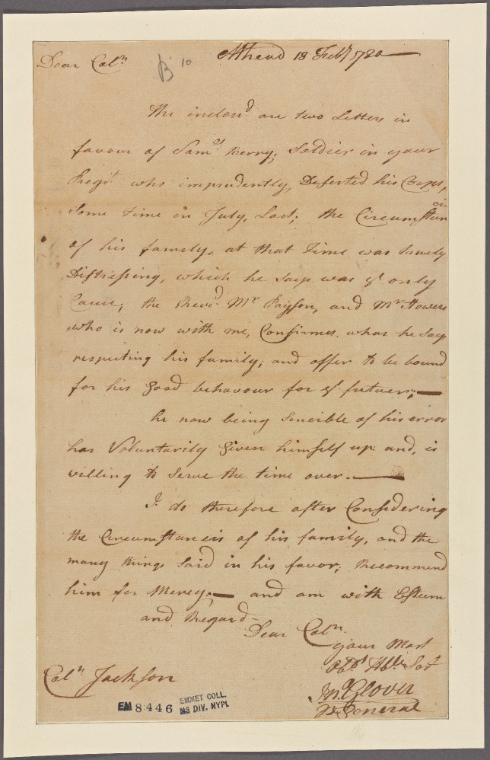 Dear Colⁿ B 10 Mhead 18 Feby 1780
The inclosd are two Letters in
favour of Samˡ Berry, Soldier in your
Regt who imprudently, Deserted his Corps,
some time in July, Last, the Circumstances
of his family, at that time was truely
Distressing, which he says was yᵉ only
Cause, the Revd Mr Payson, and Mr Flowers
who is now with me, Confirmes what he says
respecting his family, and offer to be bound
for his good behavour for yᵉ futuer,—
he now being Sencible of his error
has Voluntarily given himself up and, is
willing to serve the time over.—
I do therefore after Considering
the Circumstances of his family, and the
many things said in his favor, Recommend
him for Mercy,— and am with Esteem
and Regard—
Dear Colⁿ
your Most
Obdt Hble Sert
Jnº Glover
B General
Colⁿ Jackson
EM 8446 EMMET COLL.
MS DIV. NYPL